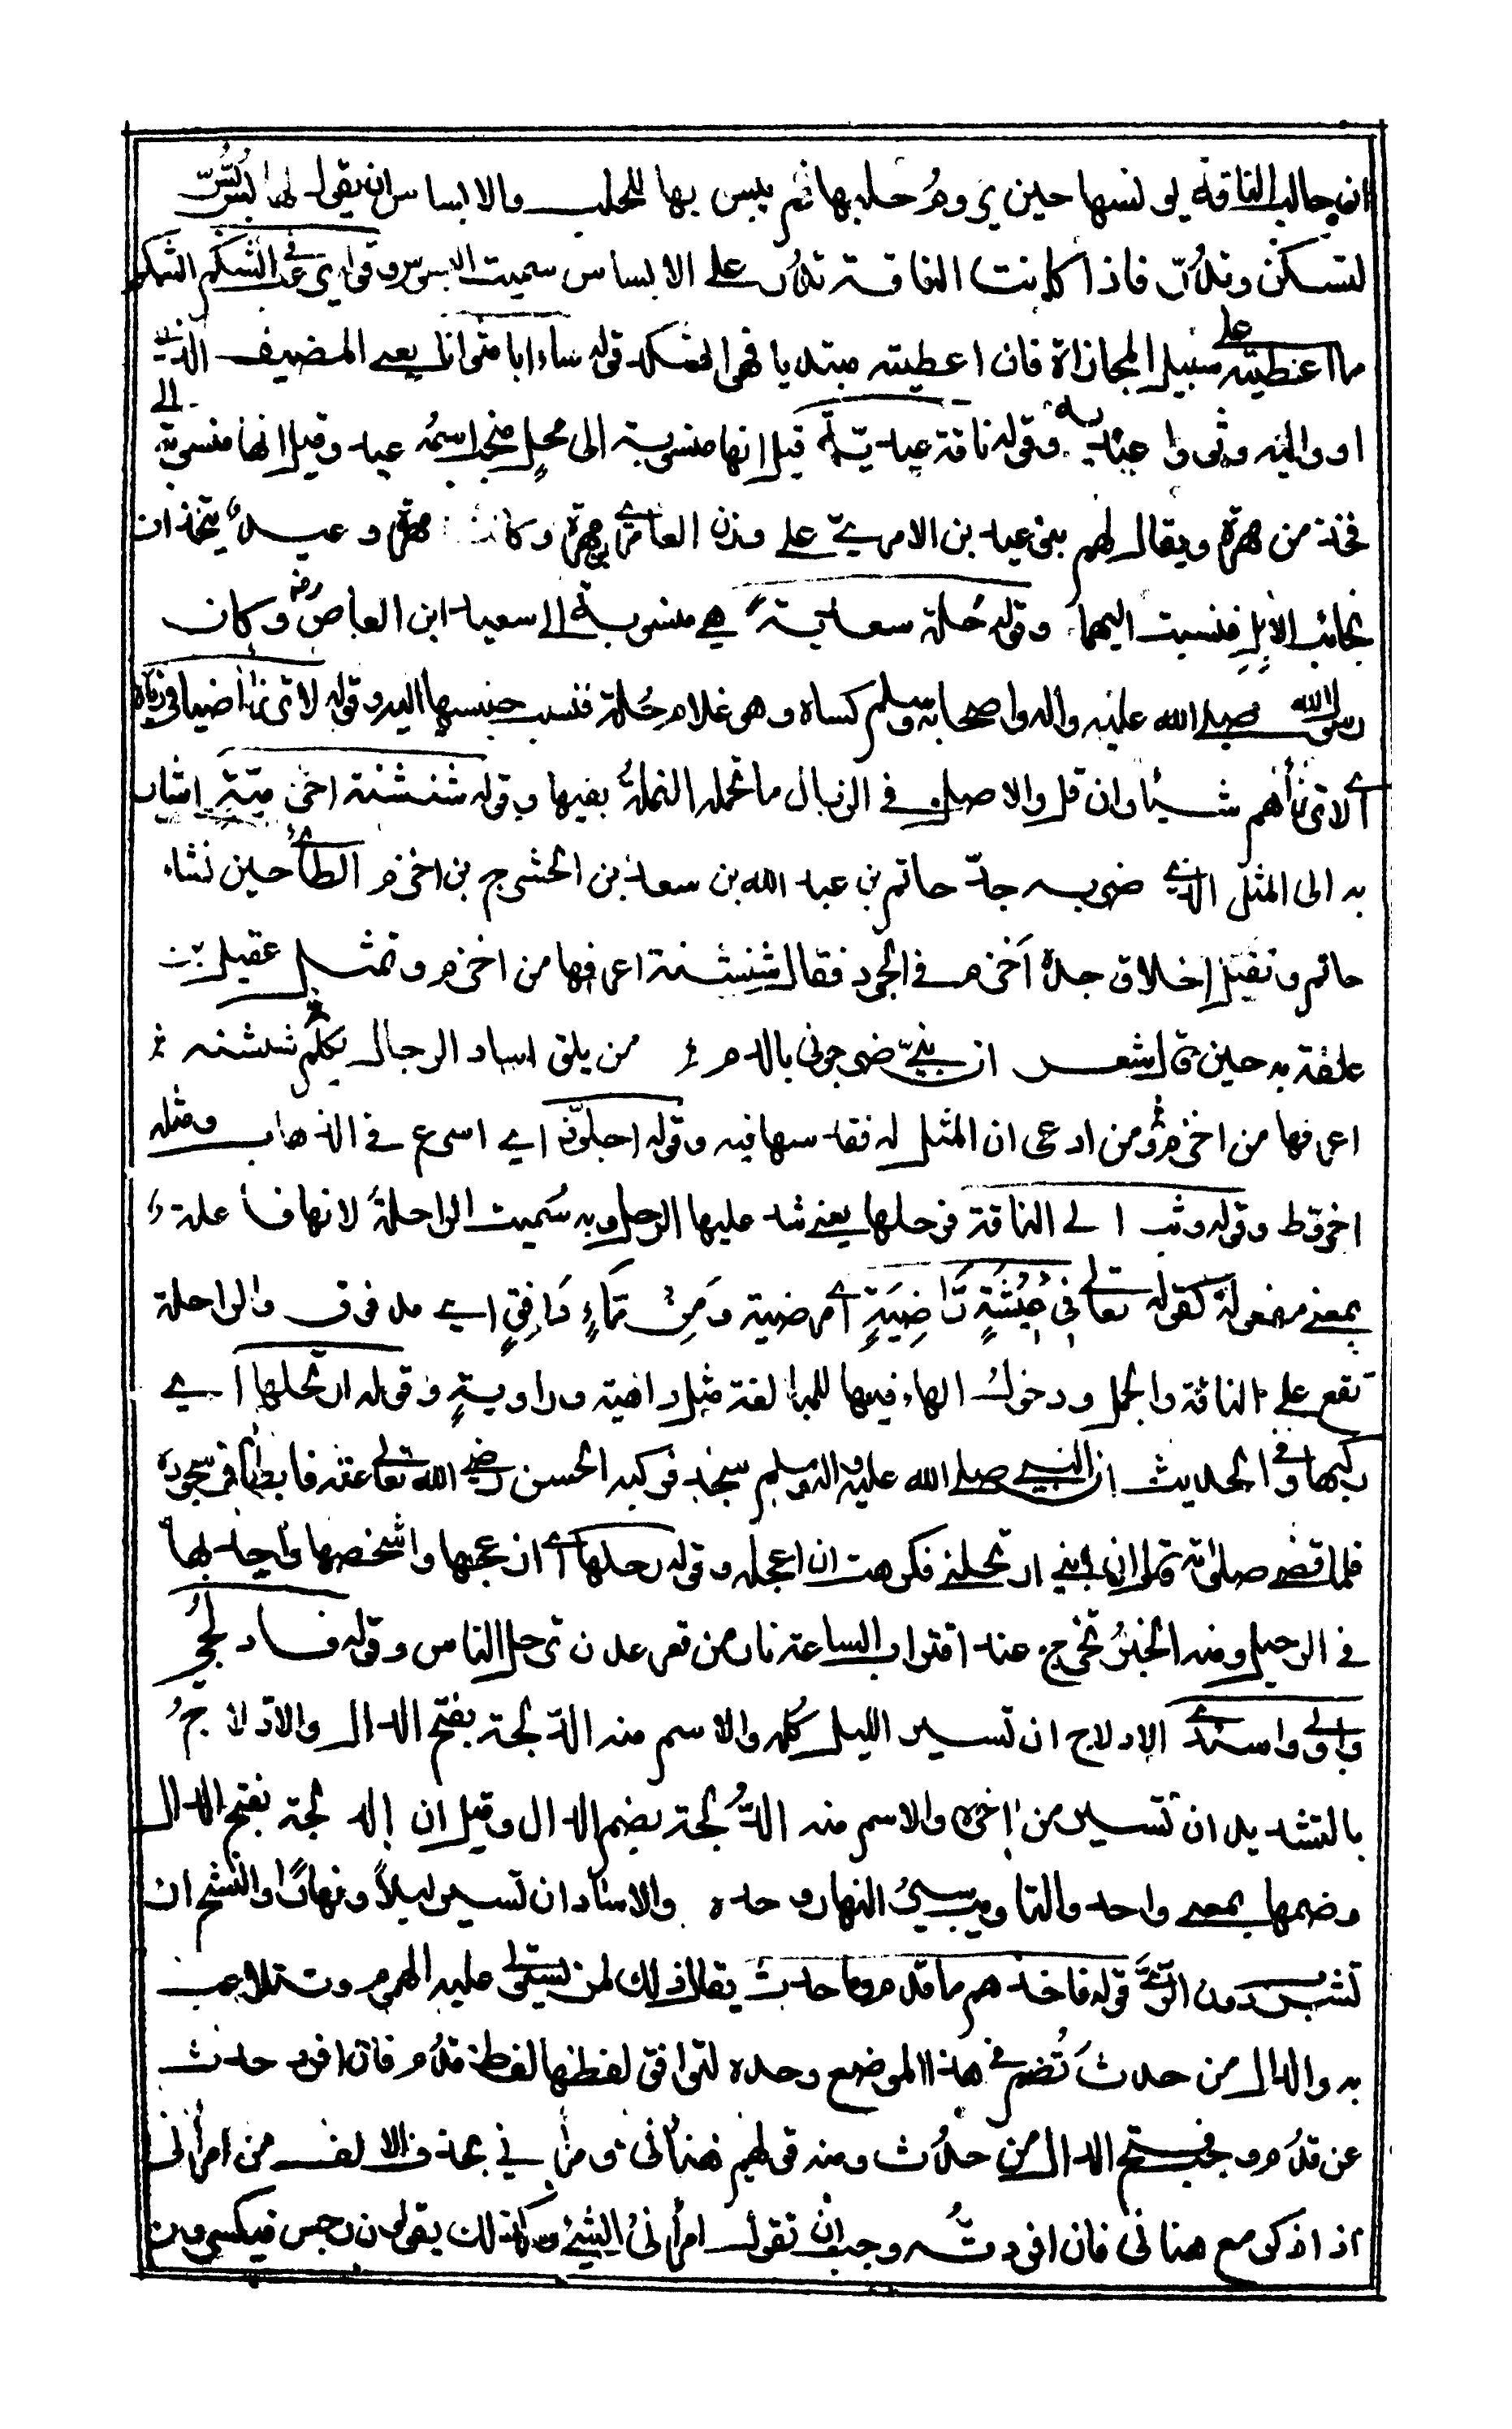 ان حالب الناقة يونسها حين يروم حلبها ثم يبس بها للحلب والابساس ان يقول لها بُسّ بُسّ
لتسكن وتدرّ فاذا كانت الناقة تدرّ على الابساس سميت البسوس وقوله يرغب في الشكم الشكم
ما اعطيته على سبيل المجازاة فان اعطيته مبتديا فهو الشكد قوله ساء ابا مثوانا يعني المضيف الذي
اووا اليه وثووا عنده وقوله ناقة عيدية قيل انها منسوبة الى فحل منجب اسمه عيد وقيل انها منسوبة الى
فخذ من مهرة ويقال لهم بنو عيد بن الامريّ على وزن العامريّ مهرة وكانت مهرة وعيد يتخذان
نجائب الابل فنسبت اليهما وقوله حُلة سعيدية هي منسوبة الى سعيد ابن العاص رضه وكان
رسول الله صلى الله عليه واله واصحابه وسلم كساه وهو غلام حُلة فنسب جنسها اليه وقوله لا ترزأ اضيافي زبالا
اي لا ترزأهم شيئا وان قل والاصل في الزبال ما تحمله النملة بفيها وقوله شنشنة اخزمية اشار
به الى المثل الذي ضربه جدّ حاتم بن عبد الله بن سعد بن الحشرج بن اخزم الطائي حين نشاء
حاتم وتقيل اخلاق جده اخزم في الجود فقال شنشنة اعرفها من اخزم وتمثل عقيل بن
علفة به حين قال شعر ان بنيّ ضرجوني بالدم من يلق اساد الرجال يكلم شنشنه
اعرفها من اخزم ومن ادعى ان المثل له فقد سها فيه وقوله اجلوّذ اي اسرع في الذهاب ومثله
اخروّط وقوله وثب الى الناقة فرحلها يعني شد عليها الرحل وبه سُميت الراحلة لانها فاعلة
بمعنى مفعولة كقوله تعالى في عِيشَةٍ رَاضِيَةٍ اي مرضية ومِن مَّاءٍ دَافِقٍ اي مدفوق والراحلة
تقع على الناقة والجمل ودخول الهاء فيها للمبالغة مثل داهية وراوية وقوله ارتحلها اي
ركبها وفي الحديث ان النبي صلى الله عليه واله وسلم سجد فركبه الحسن رضي الله تعالى عنه فابطأ في سجوده
فلما قضى صلوته قال ان ابني ارتحلني فكرهت ان اعجله وقوله رحلها اي ازعجها واشخصها واجد بها
في الرحيل ومنه الخبر تخرج عند اقتراب الساعة نار من قعر عدن ترحل الناس وقوله فادلجي
واوبي واسئدي الادلاج ان تسير الليل كله والاسم منه الدلجة بفتح الدال والادّلاجُ
بالتشديد ان تسير من اخره والاسم منه الدُّلجة بضم الدال وقيل ان الدلجة بفتح الدال
وضمها بمعنى واحد والتاويب سير النهار وحده والاسئاد ان تسير ليلاً ونهارًا والنشح ان
تشرب دون الريّ قوله فاخذهم ما قدم وما حدث يقال ذلك لمن يستولي عليه الهموم وتتلاعب
به والدال من حدث تُضم في هذا الموضع وحده لتوافق لفظها لفظة قدم فان افرد حدث
عن قدم وجب فتح الدال من حدث ومنه قولهم هنأني ومرأني بحذف الالف من امرأني
اذا ذكر مع هنأني فان افردته وجب ان تقول امرأني الشيء وكذلك يقولون رجس فيكسرون